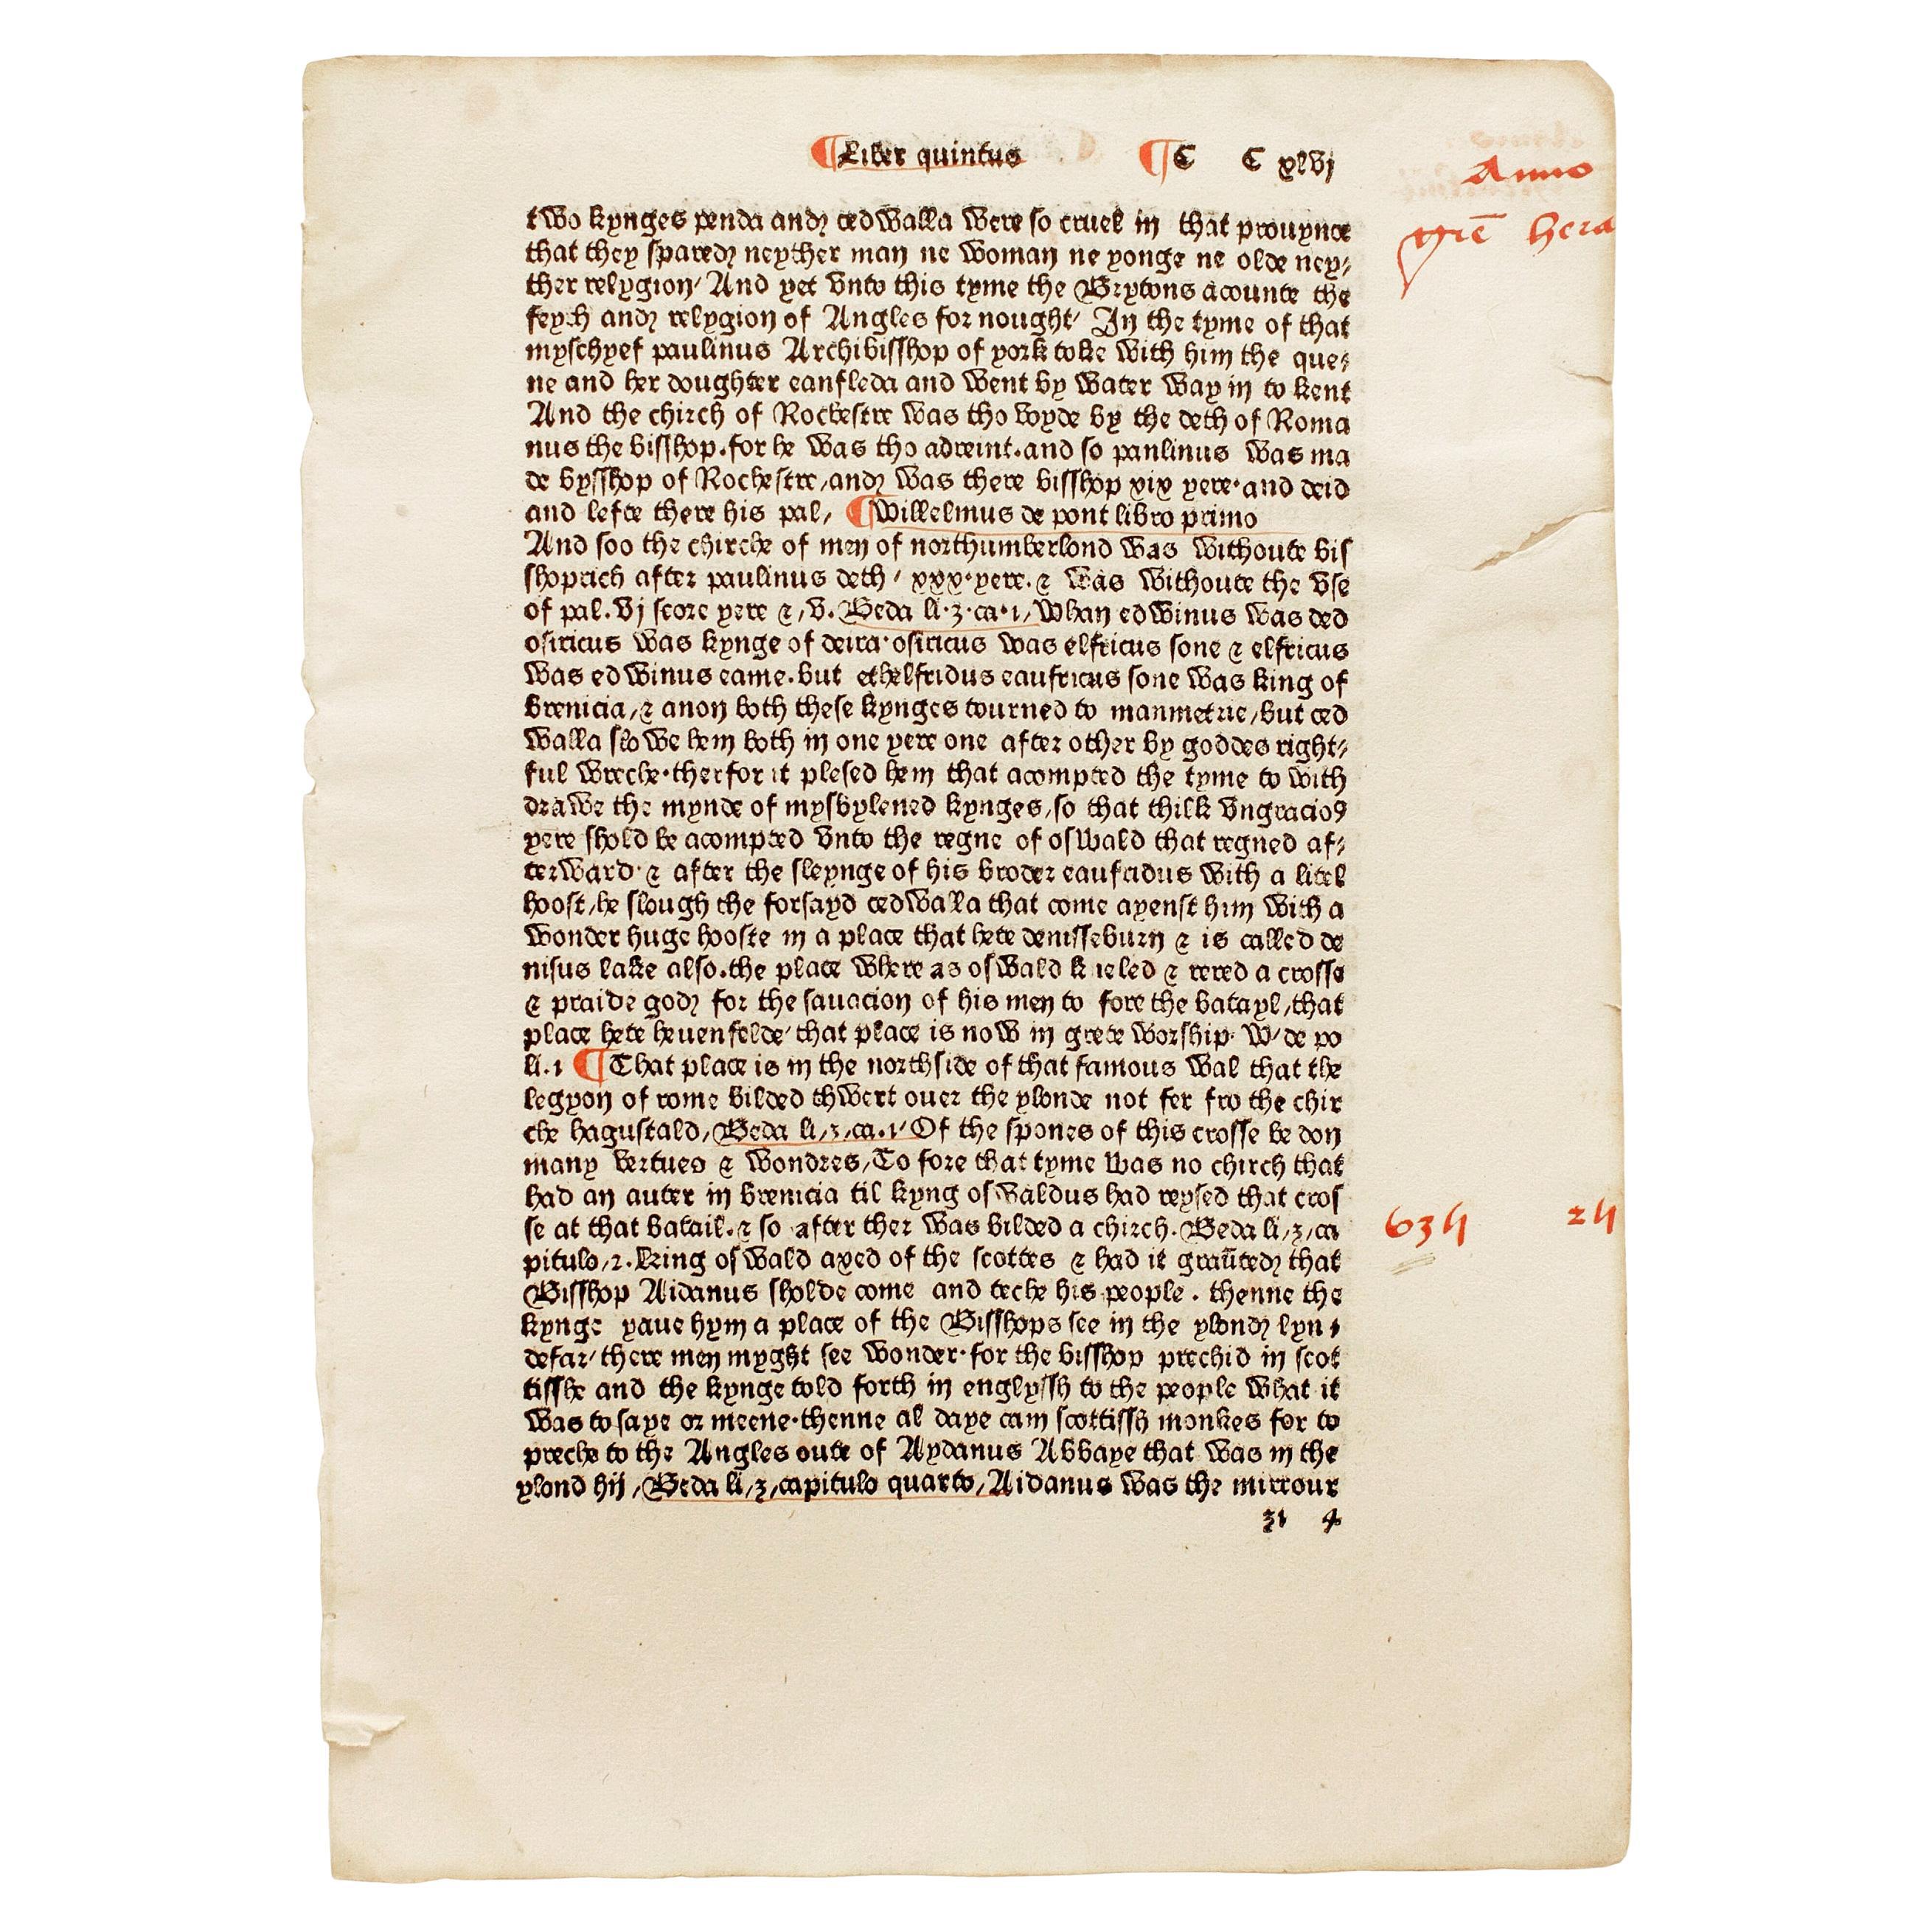 ¶Liber quintus ¶C C xlvj
Anno
gre̅ hera
two kynges penda and cedwalla were so cruel in that prouynce
that they spared neyther man ne woman ne yonge ne olde ney/
ther relygion/ And yet vnto this tyme the Brytons acounte the
feyth and relygion of Angles for nought/ In the tyme of that
myschyef paulinus Archibisshop of york toke with him the que/
ne and her doughter eanfleda and went by water way in to kent
And the chirch of Rochestre was tho voyde by the deth of Roma
nus the bisshop.for he was tho adreint.and so panlinus was ma
de bysshop of Rochestre/and was there bisshop xix yere.and deid
and lefte there his pal/ ¶willelmus de pont libro primo
And soo the chirche of men of northumberlond was withoute bis
shoprich after paulinus deth/ xxx.yere.⁊ was withoute the vse
of pal.vj score yere ⁊/v. Beda li.3.ca.1/whan edwinus was ded
osricus was kynge of deira.osricus was elfricus sone ⁊ elfricus
was edwinus eame.but ethelfridus eaufricus sone was king of
brenicia/⁊ anon both these kynges tourned to manmetrie/but ced
walla slowe hem both in one yere one after other by goddes right/
ful wreche.therfor it plesed hem that acompted the tyme to with
drawe the mynde of mysbylened kynges/so that thilk vngracioꝰ
yere shold be acompted vnto the regne of oswald that regned af/
terward.⁊ after the sleynge of his broder eaufridus with a litel
hoost/he slough the forsayd cedwalla that come ayenst him with a
wonder huge hooste in a place that hete denisseburn ⁊ is called de
nisus lake also.the place where as oswald kneled ⁊ rered a crosse
⁊ praide god for the sauacion of his men to fore the batayl/that
place hete heuenfelde/that place is now in grete worship. W/de po
li.1 ¶That place is in the northside of that famous wal that the
legyon of rome bilded thwert ouer the ylonde not fer fro the chir
che hagustald/Beda li/3/ca.1/Of the spones of this crosse be don
many vertues ⁊ wondres/To fore that tyme was no chirch that
had an auter in brenicia til kyng oswaldus had reysed that cros
se at that batail.⁊ so after ther was bilded a chirch.Beda li/3/ca
634 24
pitulo/2.king oswald axed of the scottes ⁊ had it grau̅ted that
Bisshop Aidanus sholde come and teche his people. thenne the
kynge yaue hym a place of the Bisshops see in the ylond lyn/
defar/there men myght see wonder.for the bisshop prechid in scot
tisshe and the kynge told forth in englyssh to the people what it
was to saye or meene.thenne al daye cam scottissh monkes for to
preche to the Angles oute of Aydanus Abbaye that was in the
ylond hij/Beda li/3/capitulo quarto/Aidanus was the mirrour
31 4